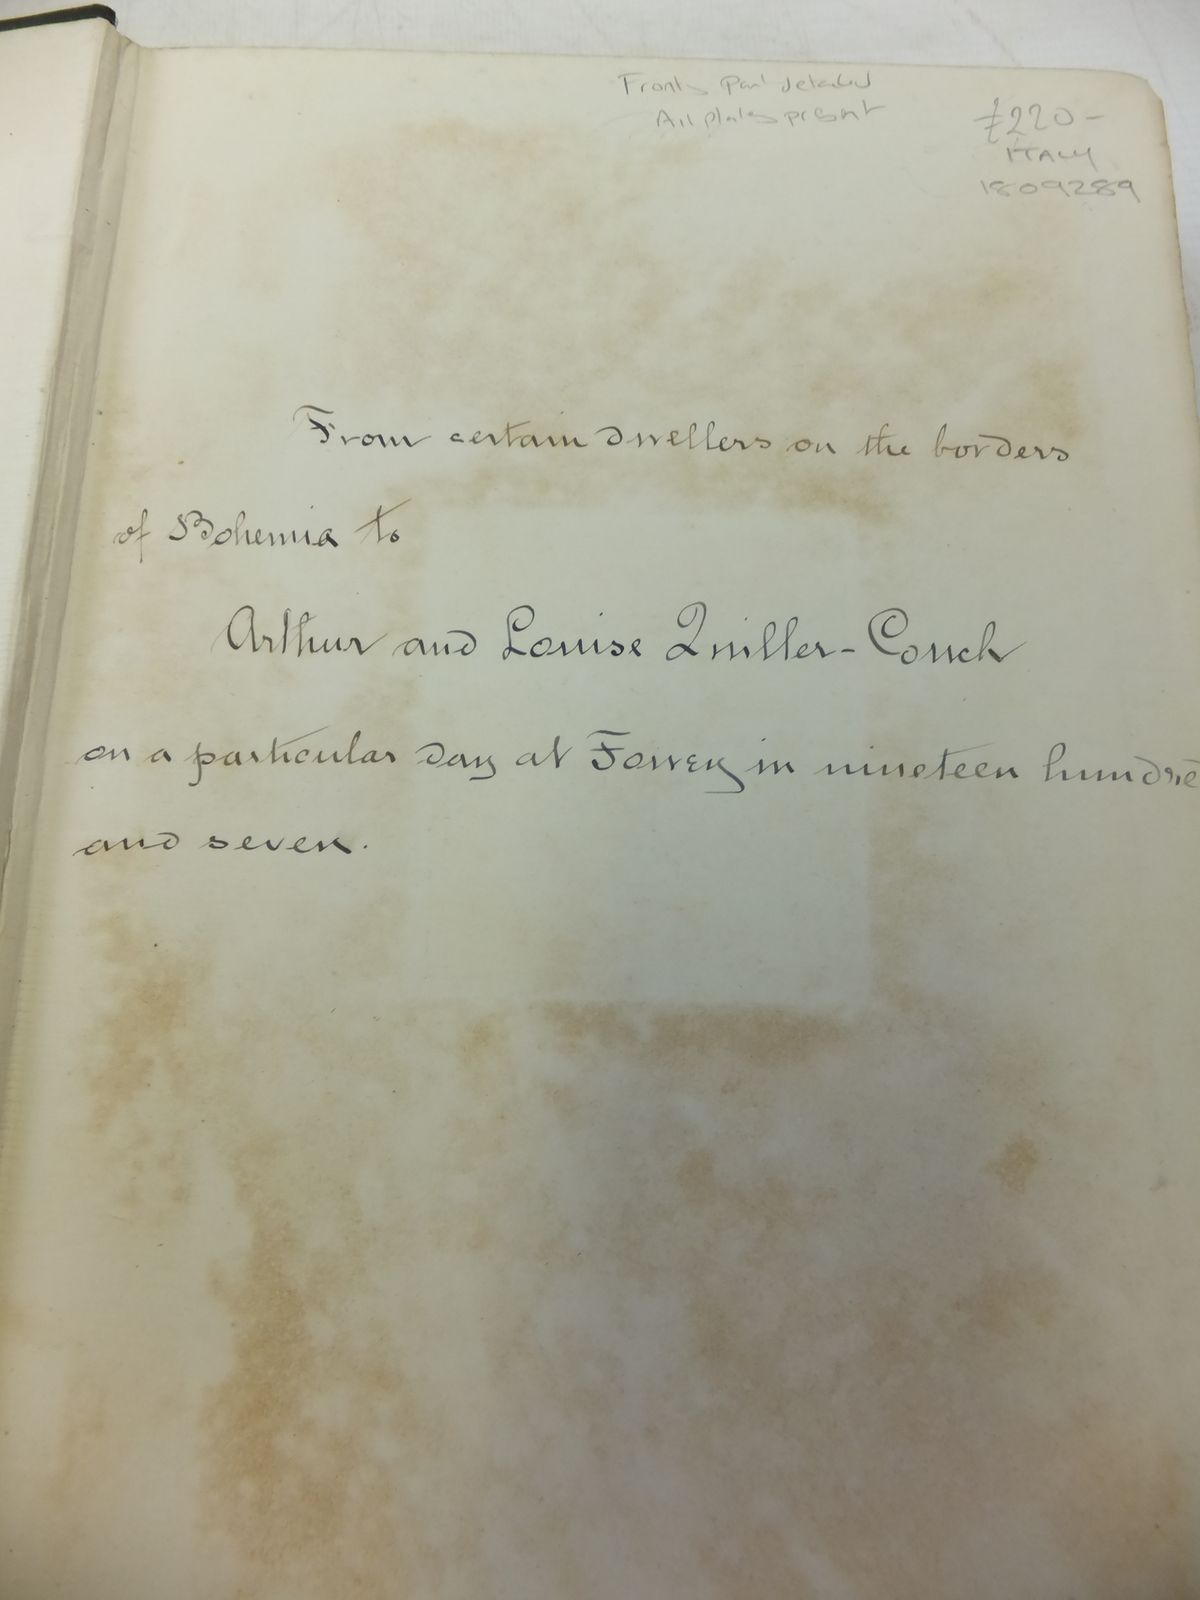 Frontis part detached
All plates present
£220-
ITALY
1809289
From certain dwellers on the borders
of Bohemia to
Arthur and Louise Quiller-Couch
on a particular day at Fowey in nineteen hundre
and seven.